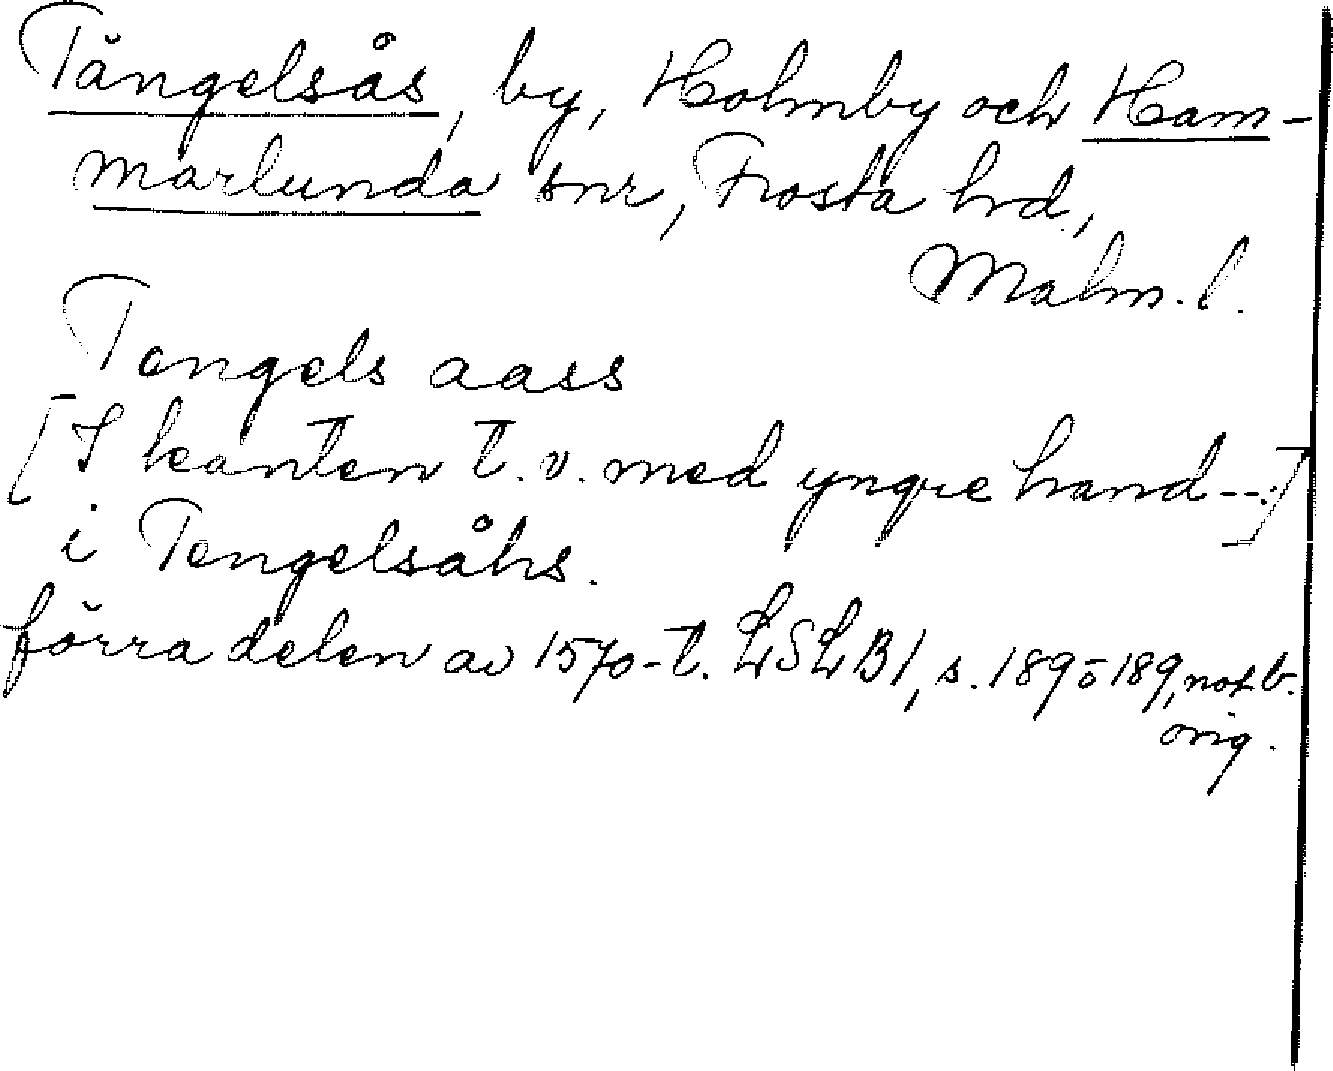 Tängelsås, by, Holmby och Ham-
marlunda snr, Frosta hrd,
Malm. l.
Tengels aass
[I kanten t. v. med yngre hand --:]
i Tengelsåhs.
förra delen av 1570-t. LSLB1, s. 189 o 189, not b.
orig.